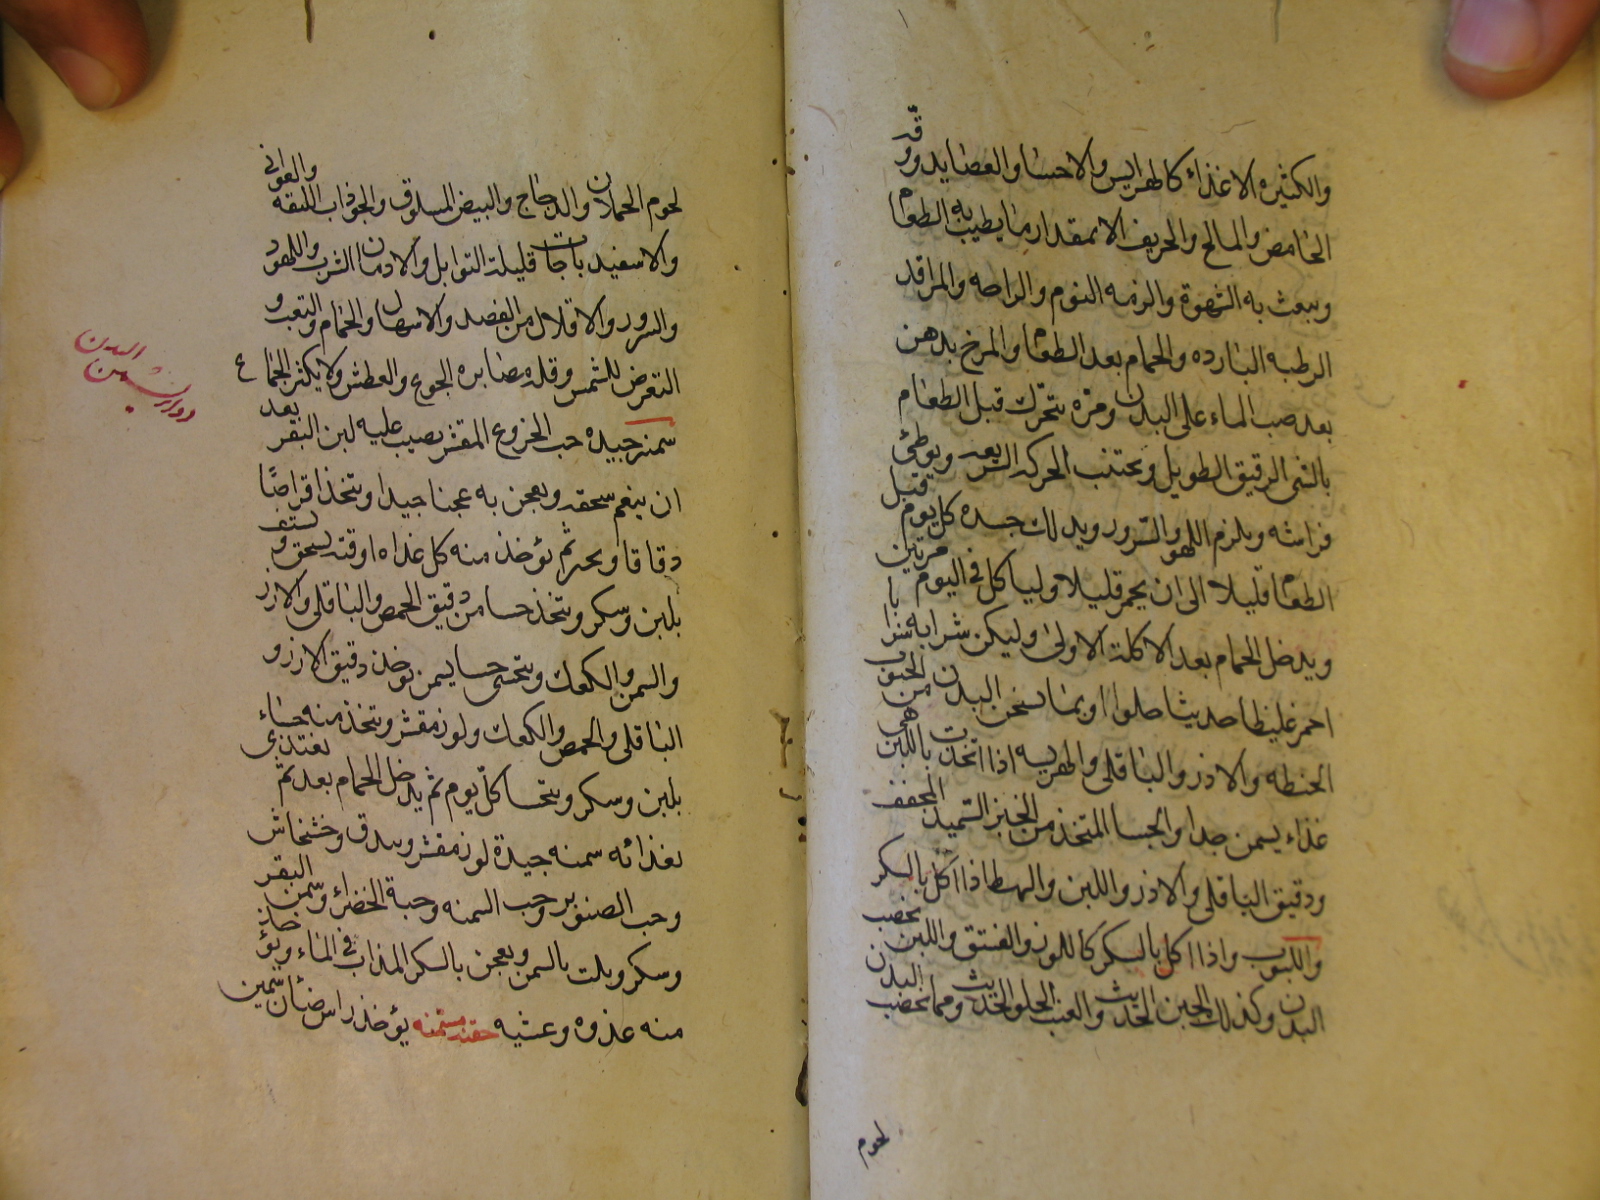 والكثيره الاغذاء كالهرايس والاحسا والعصايد وقد
الحامض والمالح والحريف الا بمقدار ما يطيب به الطعام
ويبعث به الشهوة والزمه النوم والراحه والمراقد
الرطبه البارده والحمام بعد الطعام والمرخ بدهن
بعد صب الماء على البدن ومره يتحرك قبل الطعام
بالشى الرقيق الطويل ويجتنب الحركه السريعه ويوطئ
فراشه ويلزم اللهو والسرور ويدلك جسده كل يوم قبل
الطعام قليلا الى ان يحمر قليلا ولياكل فى اليوم مرتين
ويدخل الحمام بعد الاكلة الاولى وليكن شرابه شرابا
احمر غليظا حديثا حلوا اوبما يسخن البدن من الحبوب
الحنطه والارز والباقلى والهريسه اذا اتخذت باللبن هى
غذاء يسمن جدا والحسا المتخذ من الخبز السميد المجفف
ودقيق الباقلى والارز واللبن والبهط اذا اكل بالسكر
واللبوب واذا اكل بالسكر كاللوز والفستق واللبن يخصب
البدن وكذلك الجبن الحديث والعنب الحلو الحديث ومما يخصب البدن
لحوم
لحوم الحملان والدجاج والبيض المسلوق والجوذاب اللبقه والفوانى
والاسفيدباجات قليلة التوابل والادمان الشرب واللهو
والسرور والاقلال من الفصد والاسهال والحمام والتعب و
التعرض للشمس وقله مصابره الجوع والعطش ولا يكثر الجماع
سمنه جيده حب الخروع المقشر يصب عليه لبن البقر بعد
ان ينعم سحقه ويعجن به عجنا جيدا ويتخذ اقراصا
دقاقا ويخبز ثم يؤخذ منه كل غداه اوقيه يسحق ويستف
بلبن وسكر ويتخذ حسا من دقيق الحمص والباقلى والارز
والسمن والكعك ويتحسى حسا يسمن يوخذ دقيق الارز و
الباقلى والحمص والكعك ولوز مقشر ويتخذ منه حساء
بلبن وسكر ويتحسا كل يوم ثم يدخل الحمام بعد ثم يغتذى
بغذائه سمنه جيدة لوز مقشر وبندق وخشخاش
وحب الصنوبر وحب السمنه وحبة الخضراء وسمن البقر
وسكر ويلت بالسمن ويعجن بالسكر المذاب فى الماء ويؤخذ
منه غدوه وعشيه حقنه مسمنه يؤخذ راس ضان سمين